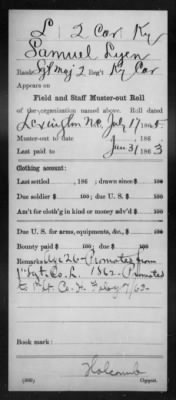 L 2 Cav Ky
Samuel Lyen
Rank Sgt Maj 2 Reg't Ky Cav
Appears on
Field and Staff Muster-out Roll
of the organization named above. Roll dated
Lexington N.C. July 17, 1865.
Muster-out to date , 186 .
Last paid to , 1863
Clothing account:
Last settled , 186 ; drawn since $ 100
Due soldier $ 100; due U. S. $ 100
Am't for cloth'g in kind or money adv'd $ 100
Due U. S. for arms, equipments, &c., $ 100
Bounty paid $ 100; due $ 100
Remarks: Age 26- Promoted from
1" Sgt. Co. L. 1862- Promoted
to Co.
Holcomb
(860) Copyist.